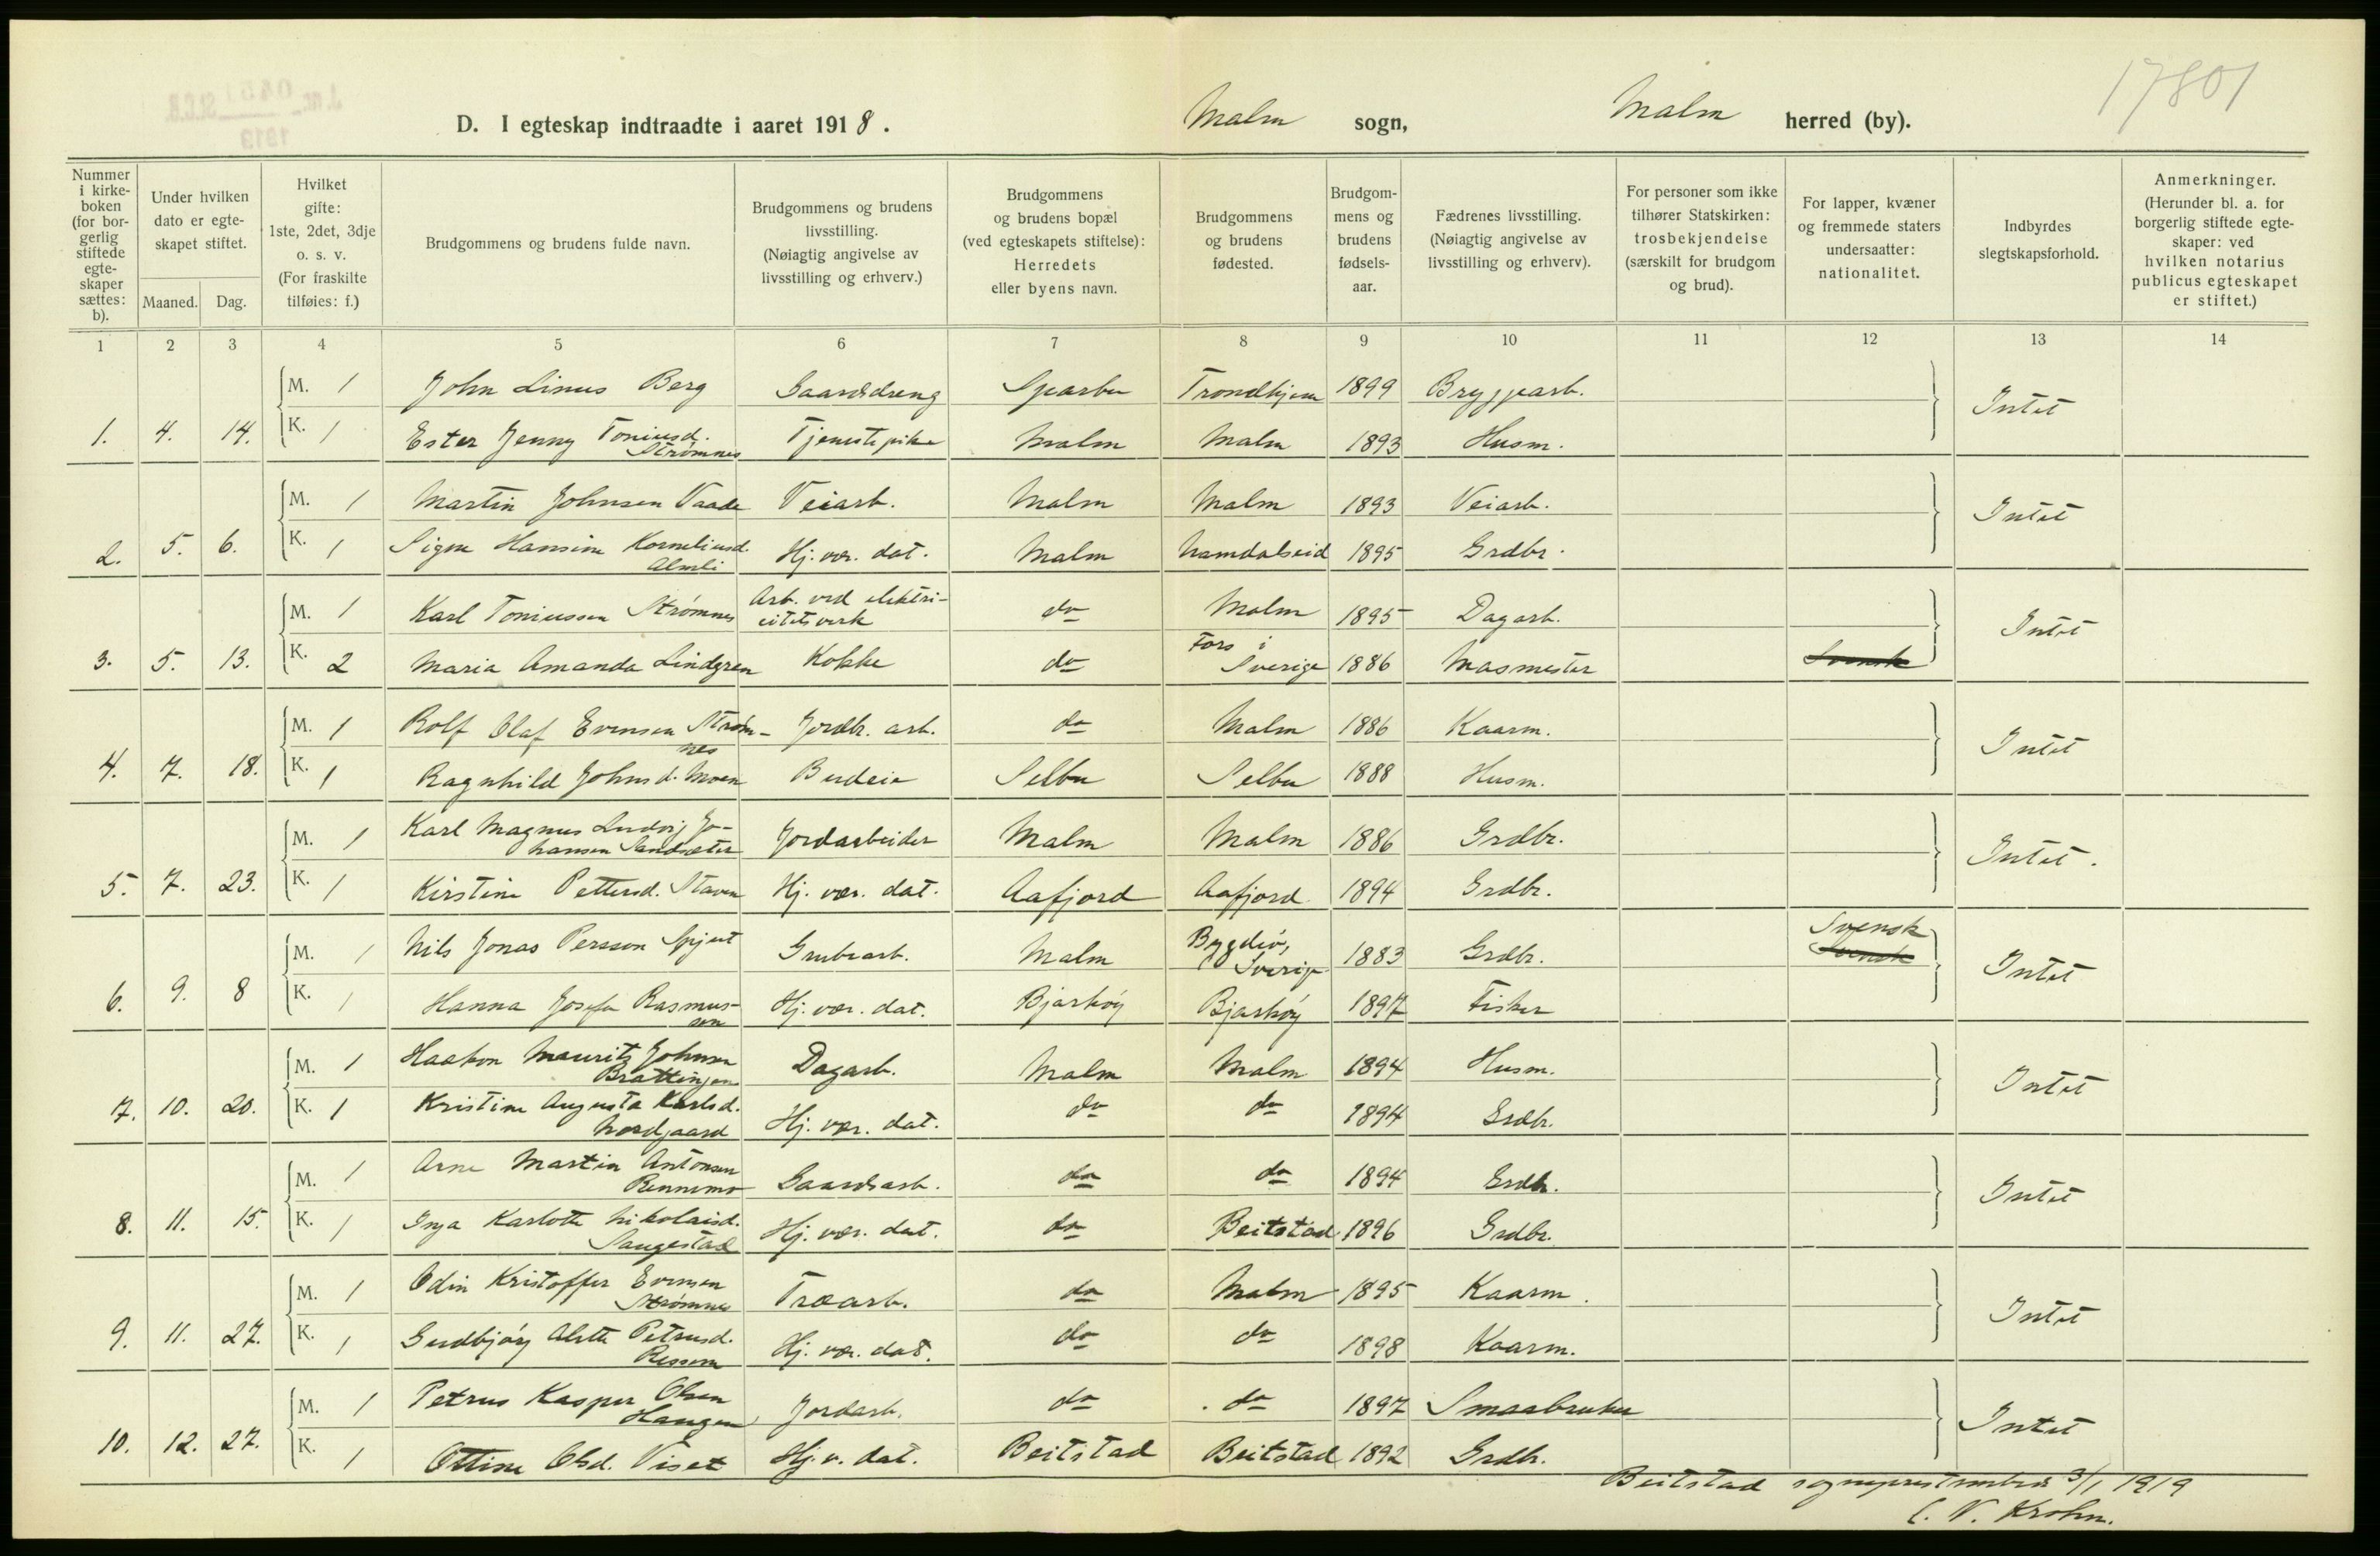 17801
D. I egteskap indtraadte i aaret 1918. Malm sogn, Malm herred (by).
Nummer i kirke-boken (for bor-gerlig stiftede egte-skaper sættes: b).
Under hvilken dato er egte-skapet stiftet.
Maaned. Dag.
Hvilket gifte: 1ste, 2det, 3dje o. s. v. (For fraskilte tilføies: f.)
Brudgommens og brudens fulde navn.
Brudgommens og brudens livsstilling. (Nøiagtig angivelse av livsstilling og erhverv.)
Brudgommens og brudens bopæl (ved egteskapets stiftelse): Herredets eller byens navn.
Brudgommens og brudens fødested.
Brudgom-mens og brudens fødsels-aar.
Fædrenes livsstilling. (Nøiagtig angivelse av livsstilling og erhverv).
For personer som ikke tilhører Statskirken: trosbekjendelse (særskilt for brudgom og brud).
For lapper, kvæner og fremmede staters undersaatter: nationalitet.
Indbyrdes slegtskapsforhold.
Anmerkninger. (Herunder bl. a. for borgerlig stiftede egte-skaper: ved hvilken notarius publicus egteskapet er stiftet.)
1 2 3 4 5 6 7 8 9 10 11 12 13 14
M. 1 John Linus Berg Gaardsdreng Sparbu Trondhjem 1899 Bryggarb. Intet
1. 4. 14. K. 1 Ester Jenny Toniusd. Strømnes Tjenestepike Malm Malm 1893 Husm.
M. 1 Martin Johnsen Vaade Veiarb. Malm Malm 1893 Veiarb. Intet
2. 5. 6. K. 1 Signe Hansine Korneliusd. Almli Hj. vær. dat. Malm Namdalseid 1895 Grdbr.
M. 1 Karl Toniussen Strømnes Arb. ved elektri-citetsverk do Malm 1895 Dagarb. Intet
3. 5. 13. K. 2 Maria Amanda Lindgren Kokke do Fors i Sverige 1886 Masmester Svensk
M. 1 Rolf Olaf Evensen Strøm-nes Jordbr. arb. do Malm 1886 Kaarm. Intet
4. 7. 18. K. 1 Ragnhild Johnsd. Moen Budeie Selbu Selbu 1888 Husm.
M. 1 Karl Magnus Ludvig Jo-hansen Sandsæter Jordarbeider Malm Malm 1886 Grdbr. Intet.
5. 7. 23. K. 1 Kirstine Pettersd. Staven Hj. vær. dat. Aafjord Aafjord 1894 Grdbr.
M. 1 Nils Jonas Persson Spjut Grubearb. Malm Bygdeå, Sverige 1883 Grdbr. Svensk Svensk Intet
6. 9. 8 K. 1 Hanna Josefa Rasmus-sen Hj. vær. dat. Bjarkøy Bjarkøy 1897 Fisker
M. 1 Haakon Mauritz Johnsen Brattingen Dagarb. Malm Malm 1894 Husm. Intet
7. 10. 20. K. 1 Kristine Augusta Karlsd. Nordgaard Hj. vær. dat. do do 1894 Grdbr.
M. 1 Arne Martin Antonsen Rennemo Gaardsarb. do do 1894 Grdbr. Intet
8. 11. 15. K. 1 Inga Karlotte Nikolaisd. Saugestad Hj. vær. dat. do Beitstad 1896 Grdbr.
M. 1 Odin Kristoffer Evensen Strømnes Træarb. do Malm 1895 Kaarm. Intet
9. 11. 27. K. 1 Gudbjørg Alette Petrusd. Ressem Hj. vær. dat. do do 1898 Kaarm.
M. 1 Petrus Kasper Olsen Haugen Jordarb. do do 1897 Smaabruker Intet
10. 12. 27. K. 1 Ottine Olsd. Viset Hj. v. dat. Beitstad Beitstad 1892 Grdbr.
Beitstad sogneprestembede 3/1 1919
C. V. Krohn.